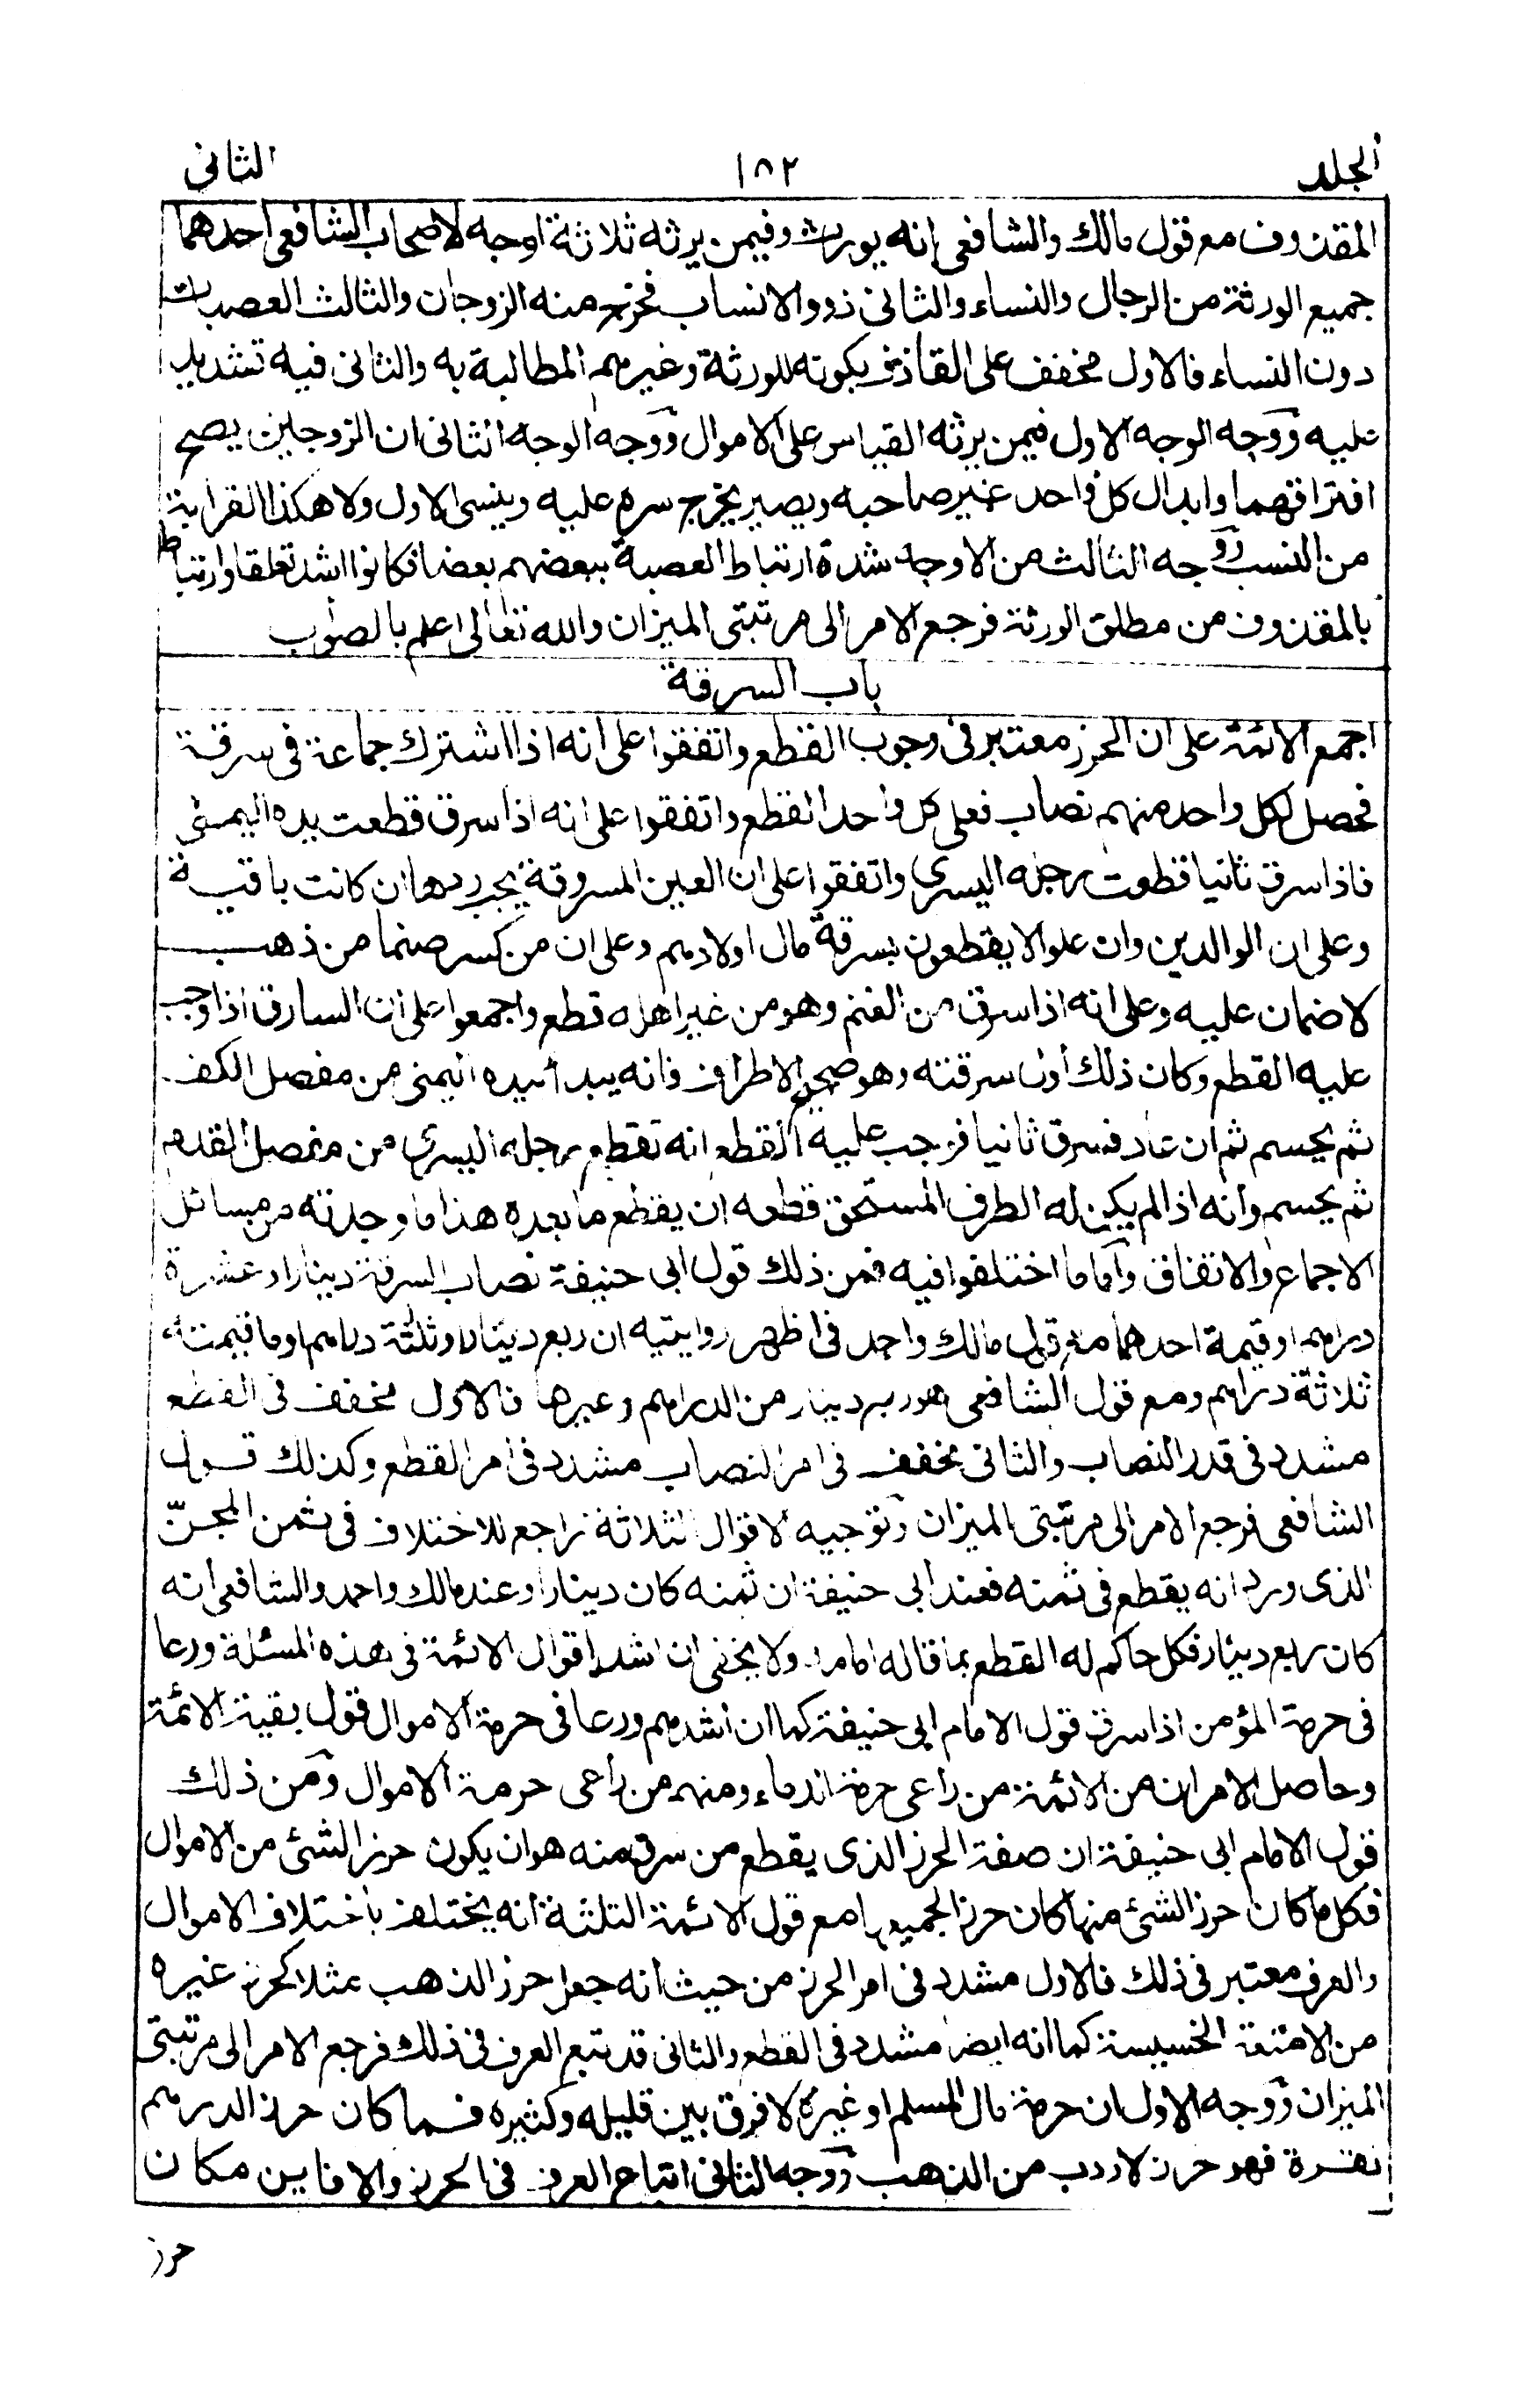 الجلد ١٨٢ الثانى
المقذوف مع قول مالك والشافعى انه يورث وفيمن يرثه ثلاثة اوجه لاصحاب الشافعى احدهما
جميع الورثة من الرجال والنساء والثانى ذوو الانساب فخرج منه الزوجان والثالث العصبات
دون النساء فالاول مخفف على القاذف بكونه للورثة وغيرهم المطالبة به والثانى فيه تشديد
عليه ووجه الوجه الاول فيمن يرثه القياس على الاموال ووجه الوجه الثانى ان الزوجين يصح
افتراقهما وابدال كل واحد غير صاحبه ويصير يخرج سره عليه وينسى الاول ولا هكذا القرابة
من النسب ووجه الثالث من الاوجه شدة ارتباط العصبة ببعضهم بعضا فكانوا اشد تعلقا وارتباطا
بالمقذوف من مطلق الورثة فرجع الامر الى مرتبتى الميزان والله تعالى اعلم بالصواب
باب السرقة
اجمع الائمة على ان الحرز معتبر فى وجوب القطع واتفقوا على انه اذا اشترك جماعة فى سرقة
فحصل لكل واحد منهم نصاب فعلى كل واحد القطع واتفقوا على انه اذا سرق قطعت يده اليمنى
فاذا سرق ثانيا قطعت رجله اليسرى واتفقوا على ان العين المسروقة يجب ردها ان كانت باقية
وعلى ان الوالدين وان علوا لا يقطعون بسرقة مال اولادهم وعلى ان من كسر صنما من ذهب
لا ضمان عليه وعلى انه اذا سرق من الغنم وهو من غير اهله قطع واجمعوا على ان السارق اذا وجب
عليه القطع وكان ذلك اول سرقته وهو صحيح الاطراف فانه يبدأ بيده اليمنى من مفصل الكف
ثم يحسم ثم ان عاد فسرق ثانيا فوجب عليه القطع انه تقطع رجله اليسرى من مفصل القدم
ثم يحسم وانه اذا لم يكن له الطرف المستحق قطعه ان يقطع ما بعده هذا ما وجدته من مسائل
الاجماع والاتفاق واما ما اختلفوا فيه فمن ذلك قول ابى حنيفة نصاب السرقة دينار او عشرة
دراهم او قيمة احدهما مع قول مالك واحمد فى اظهر روايتيه ان ربع دينار او ثلثة دراهم او ما قيمته
ثلاثة دراهم ومع قول الشافعى هو ربع دينار من الدراهم وغيرها فالاول مخفف فى القطع
مشدد فى قدر النصاب والثانى مخفف فى امر النصاب مشدد فى امر القطع وكذلك قول
الشافعى فرجع الامر الى مرتبتى الميزان وتوجيه الاقوال الثلاثة راجع للاختلاف فى ثمن المجنّ
الذى ورد انه يقطع فى ثمنه فعند ابى حنيفة ان ثمنه كان دينارا وعند مالك واحمد والشافعى انه
كان ربع دينار فكل حاكم له القطع بما قاله امامه ولا يخفى ان اشد اقوال الائمة فى هذه المسئلة ورعا
فى حرمة المؤمن اذا سرق قول الامام ابى حنيفة كما ان اشدهم ورعا فى حرمة الاموال قول بقية الائمة
وحاصل الامر ان من الائمة من راعى حرمة الدماء ومنهم من راعى حرمة الاموال ومن ذلك
قول الامام ابى حنيفة ان صفة الحرز الذى يقطع من سرق منه هو ان يكون حرز الشئ من الاموال
فكل ما كان حرز الشئ منها كان حرز الجميعها مع قول الائمة الثلثة انه يختلف باختلاف الاموال
والعرف معتبر فى ذلك فالاول مشدد فى امر الحرز من حيث انه جعل حرز الذهب مثلا كحرز غيره
من الامتعة الخسيسة كما انه ايضا مشدد فى القطع والثانى قد تبع العرف فى ذلك فرجع الامر الى مرتبتى
الميزان ووجه الاول ان حرمة مال المسلم او غيره لا فرق بين قليله وكثيره فما كان حرز الدرهم
نقرة فهو حرز لاردب من الذهب ووجه الثانى اتباع العرف فى الحرز والا فاين مكان
حرز